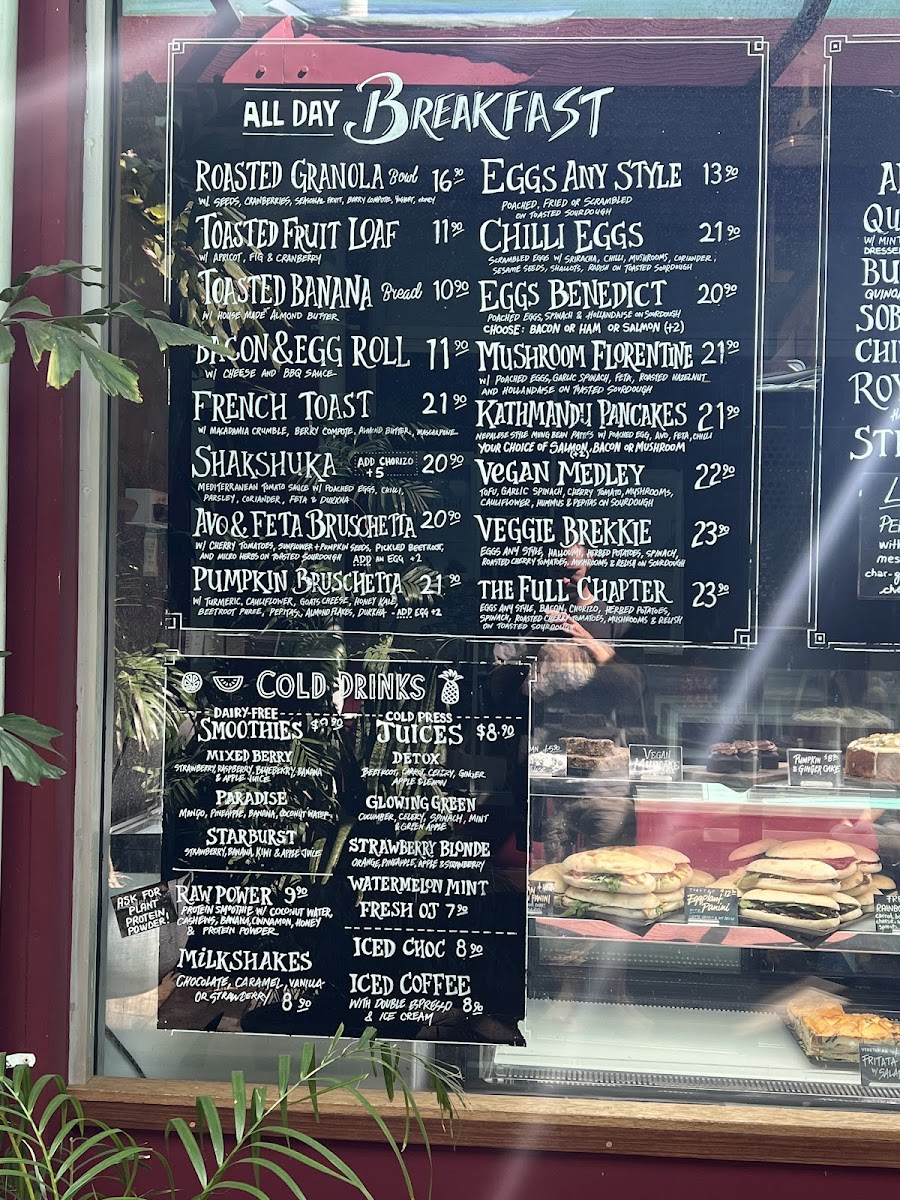 ALL DAY BREAKFAST
ROASTED GRANOLA Bowl 16.90
W/ SEEDS, CRANBERRIES, SEASONAL FRUIT, BERRY COMPOTE, YOGHURT, HONEY
TOASTED FRUIT LOAF 11.90
W/ APRICOT, FIG & CRANBERRY
TOASTED BANANA Bread 10.90
W/ HOUSE MADE ALMOND BUTTER
BACON & EGG ROLL 11.90
W/ CHEESE AND BBQ SAUCE
FRENCH TOAST 21.90
W/ MACADAMIA CRUMBLE, BERRY COMPOTE, ALMOND BUTTER, MASCARPONE
SHAKSHUKA ADD CHORIZO +5 20.90
MEDITERRANEAN TOMATO SAUCE W/ POACHED EGGS, CHILLI,
PARSLEY, CORIANDER, FETA & DUKKHA
AVO & FETA BRUSCHETTA 20.90
W/ CHERRY TOMATOES, SUNFLOWER + PUMPKIN SEEDS, PICKLED BEETROOT,
AND MICRO HERBS ON TOASTED SOURDOUGH ADD AN EGG +2
PUMPKIN BRUSCHETTA 21.90
W/ TURMERIC, CAULIFLOWER, GOATS CHEESE, HONEY KALE,
BEETROOT PUREE, PEPITAS, ALMOND FLAKES, DUKKHA - ADD EGG +2
EGGS ANY STYLE 13.90
POACHED, FRIED OR SCRAMBLED
ON TOASTED SOURDOUGH
CHILLI EGGS 21.90
SCRAMBLED EGGS W/ SRIRACHA, CHILLI, MUSHROOMS, CORIANDER,
SESAME SEEDS, SHALLOTS, RADISH ON TOASTED SOURDOUGH
EGGS BENEDICT 20.90
POACHED EGGS, SPINACH & HOLLANDAISE ON SOURDOUGH
CHOOSE: BACON OR HAM OR SALMON (+2)
MUSHROOM FLORENTINE 21.90
W/ POACHED EGGS, GARLIC SPINACH, FETA, ROASTED HAZELNUT
AND HOLLANDAISE ON TOASTED SOURDOUGH
KATHMANDU PANCAKES 21.90
NEPALESE STYLE MUNG BEAN PATTIES W/ POACHED EGG, AVO, FETA, CHILLI
YOUR CHOICE OF SALMON, BACON OR MUSHROOM
(+2)
VEGAN MEDLEY 22.90
TOFU, GARLIC SPINACH, CHERRY TOMATO, MUSHROOMS,
CAULIFLOWER, HUMMUS & PEPITAS ON SOURDOUGH
VEGGIE BREKKIE 23.90
EGGS ANY STYLE, HALLOUMI, HERBED POTATOES, SPINACH,
ROASTED CHERRY TOMATOES, MUSHROOMS & RELISH ON SOURDOUGH
THE FULL CHAPTER 23.90
EGGS ANY STYLE, BACON, CHORIZO, HERBED POTATOES,
SPINACH, ROASTED CHERRY TOMATOES, MUSHROOMS & RELISH
ON TOASTED SOURDOUGH
COLD DRINKS
DAIRY-FREE
SMOOTHIES $9.90
MIXED BERRY
STRAWBERRY, RASPBERRY, BLUEBERRY, BANANA
& APPLE JUICE
PARADISE
MANGO, PINEAPPLE, BANANA, COCONUT WATER
STARBURST
STRAWBERRY, BANANA, KIWI & APPLE JUICE
RAW POWER 9.90
PROTEIN SMOOTHIE W/ COCONUT WATER,
CASHEWS, BANANA, CINNAMON, HONEY
& PROTEIN POWDER
ASK FOR
PLANT
PROTEIN
POWDER
MILKSHAKES
CHOCOLATE, CARAMEL, VANILLA
OR STRAWBERRY 8.90
COLD PRESS
JUICES $8.90
DETOX
BEETROOT, CARROT, CELERY, GINGER
APPLE & LEMON
GLOWING GREEN
CUCUMBER, CELERY, SPINACH, MINT
& GREEN APPLE
STRAWBERRY BLONDE
ORANGE, PINEAPPLE, APPLE & STRAWBERRY
WATERMELON MINT
FRESH OJ 7.90
ICED CHOC 8.90
ICED COFFEE
WITH DOUBLE ESPRESSO 8.90
& ICE CREAM
W/ MINT
with
VEGAN
PUMPKIN
& GINGER CAKE
Eggplant
Panini
PANINI
FRITATA
W/ SALAD